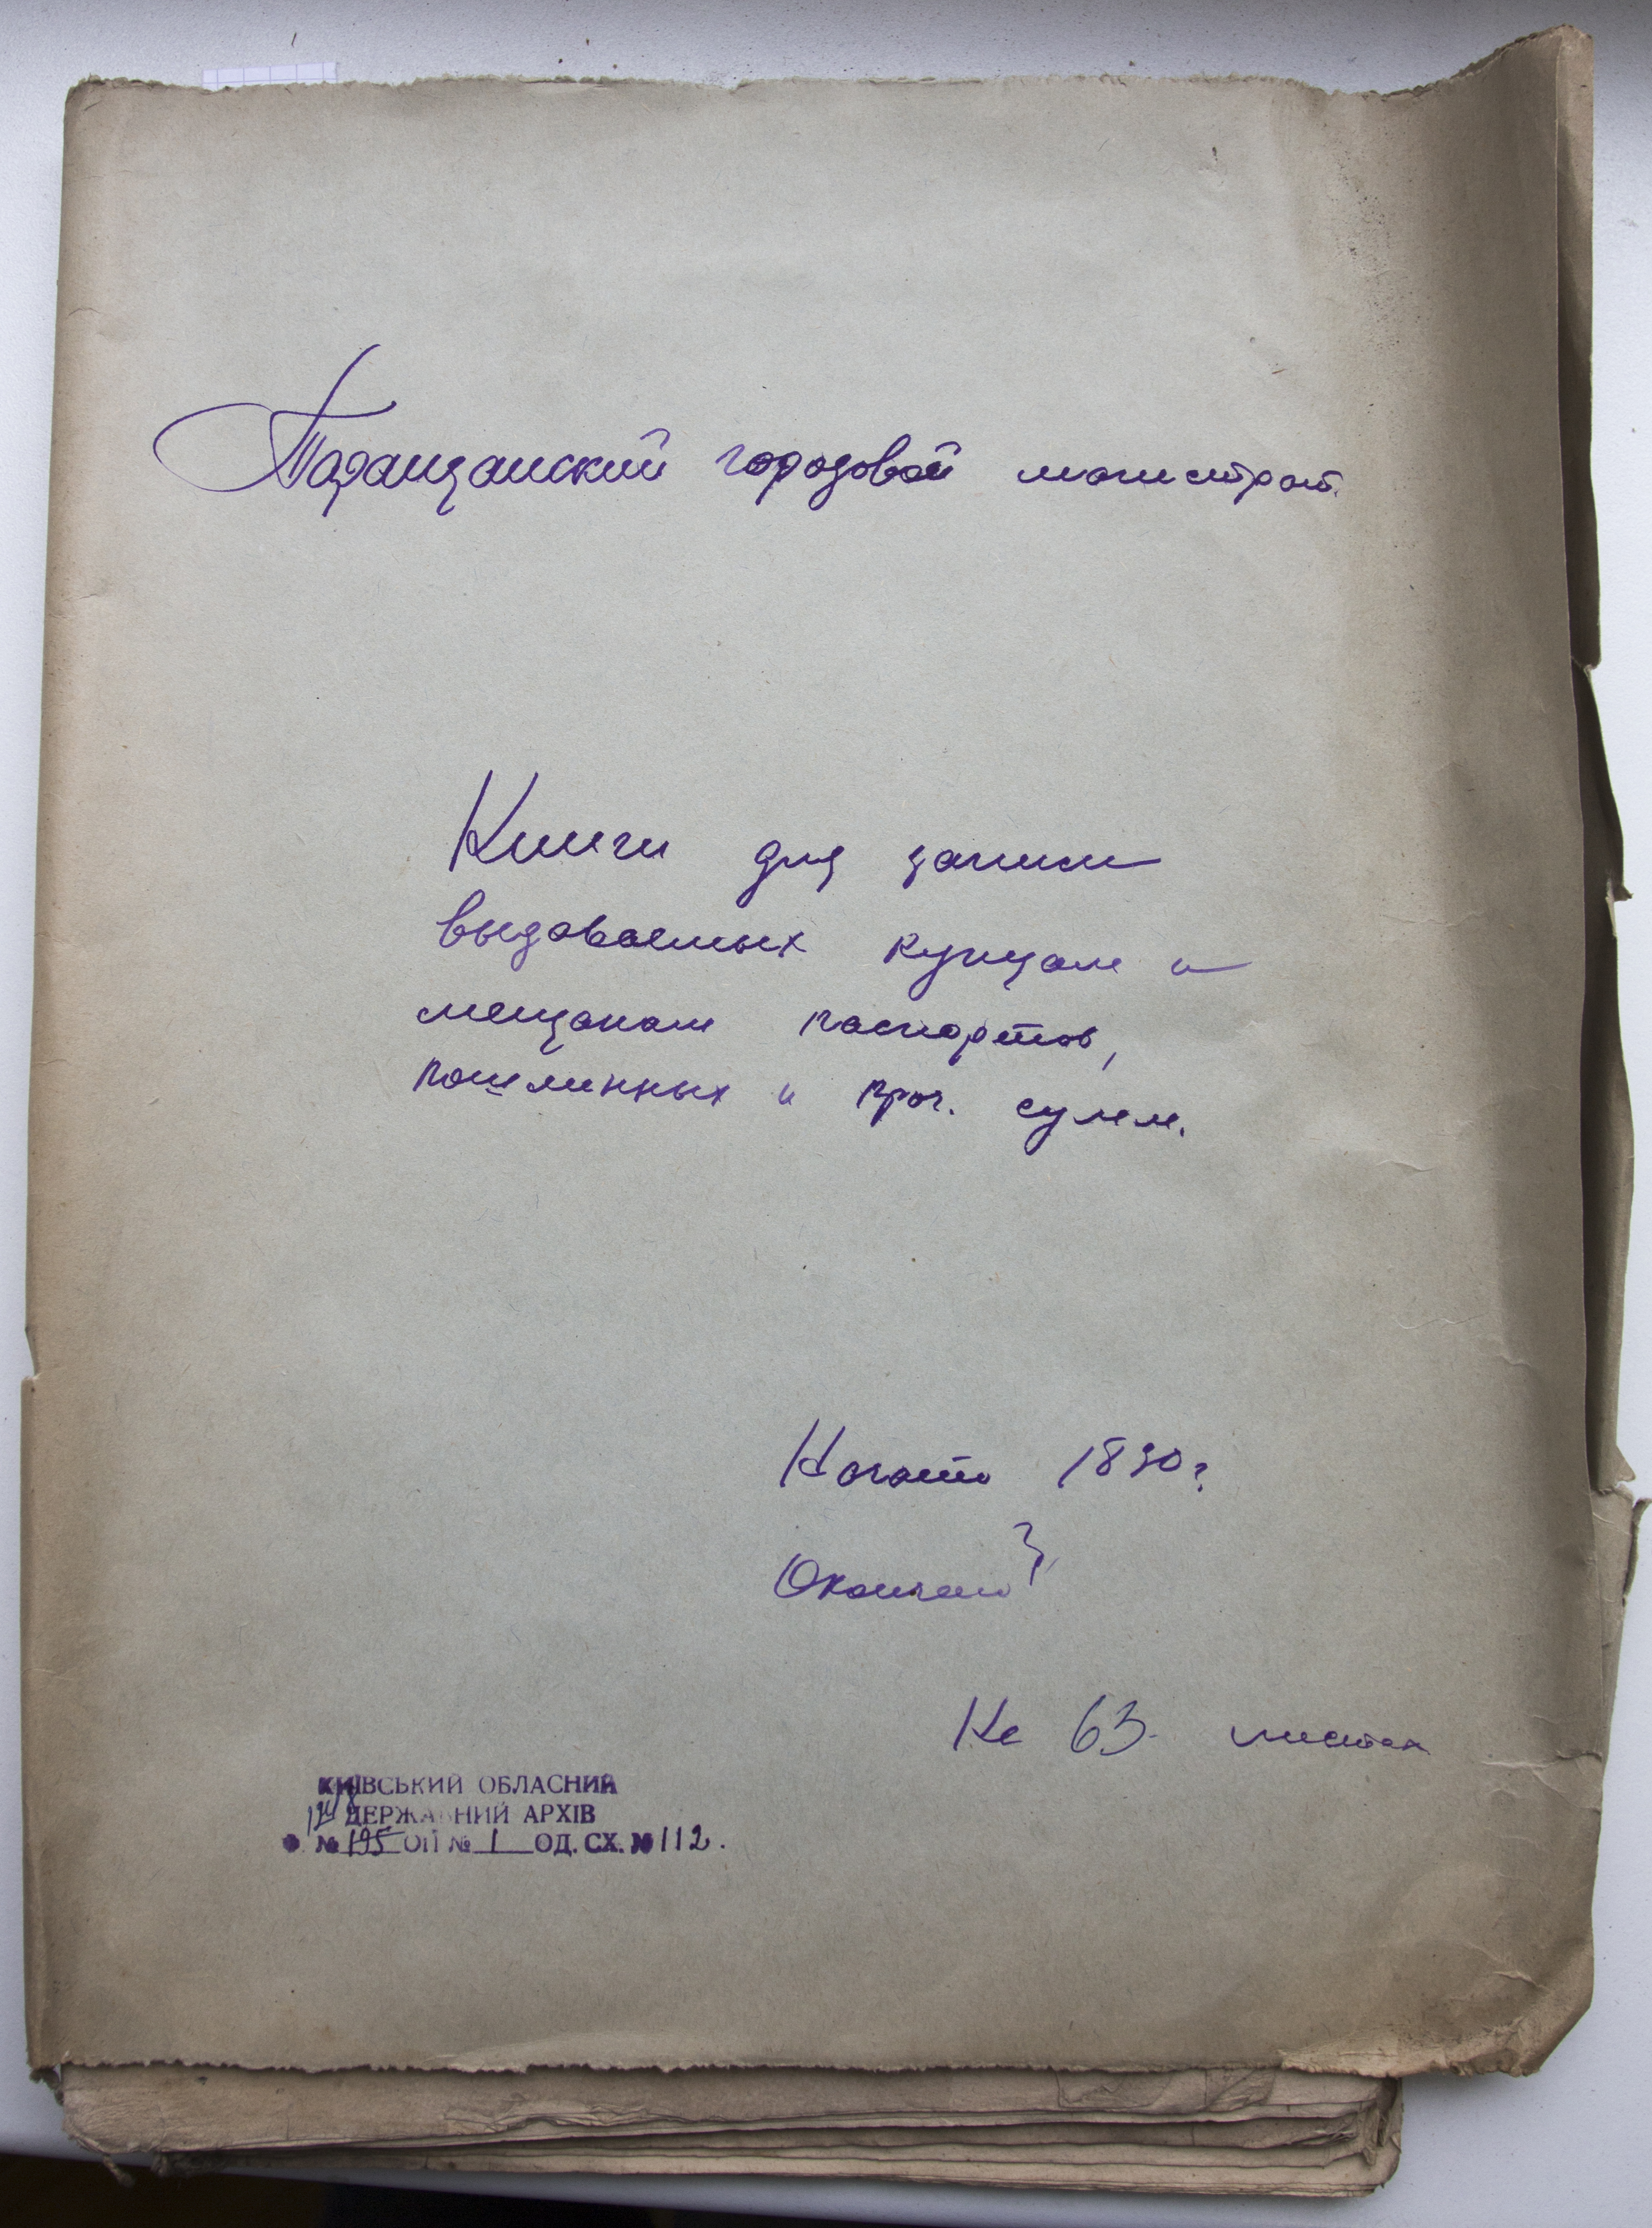 Таращанский городовой магистрат.
Книги для записи
выдаваемых купцам и
мещанам паспортов,
пошлинных и проч. сумм.
Начато 1830 г.
Окончено
На 63 листах
КИЇВСЬКИЙ ОБЛАСНИЙ
ДЕРЖАВНИЙ АРХІВ
Ф. № 195 ОП № 1 ОД. СХ. № 112.